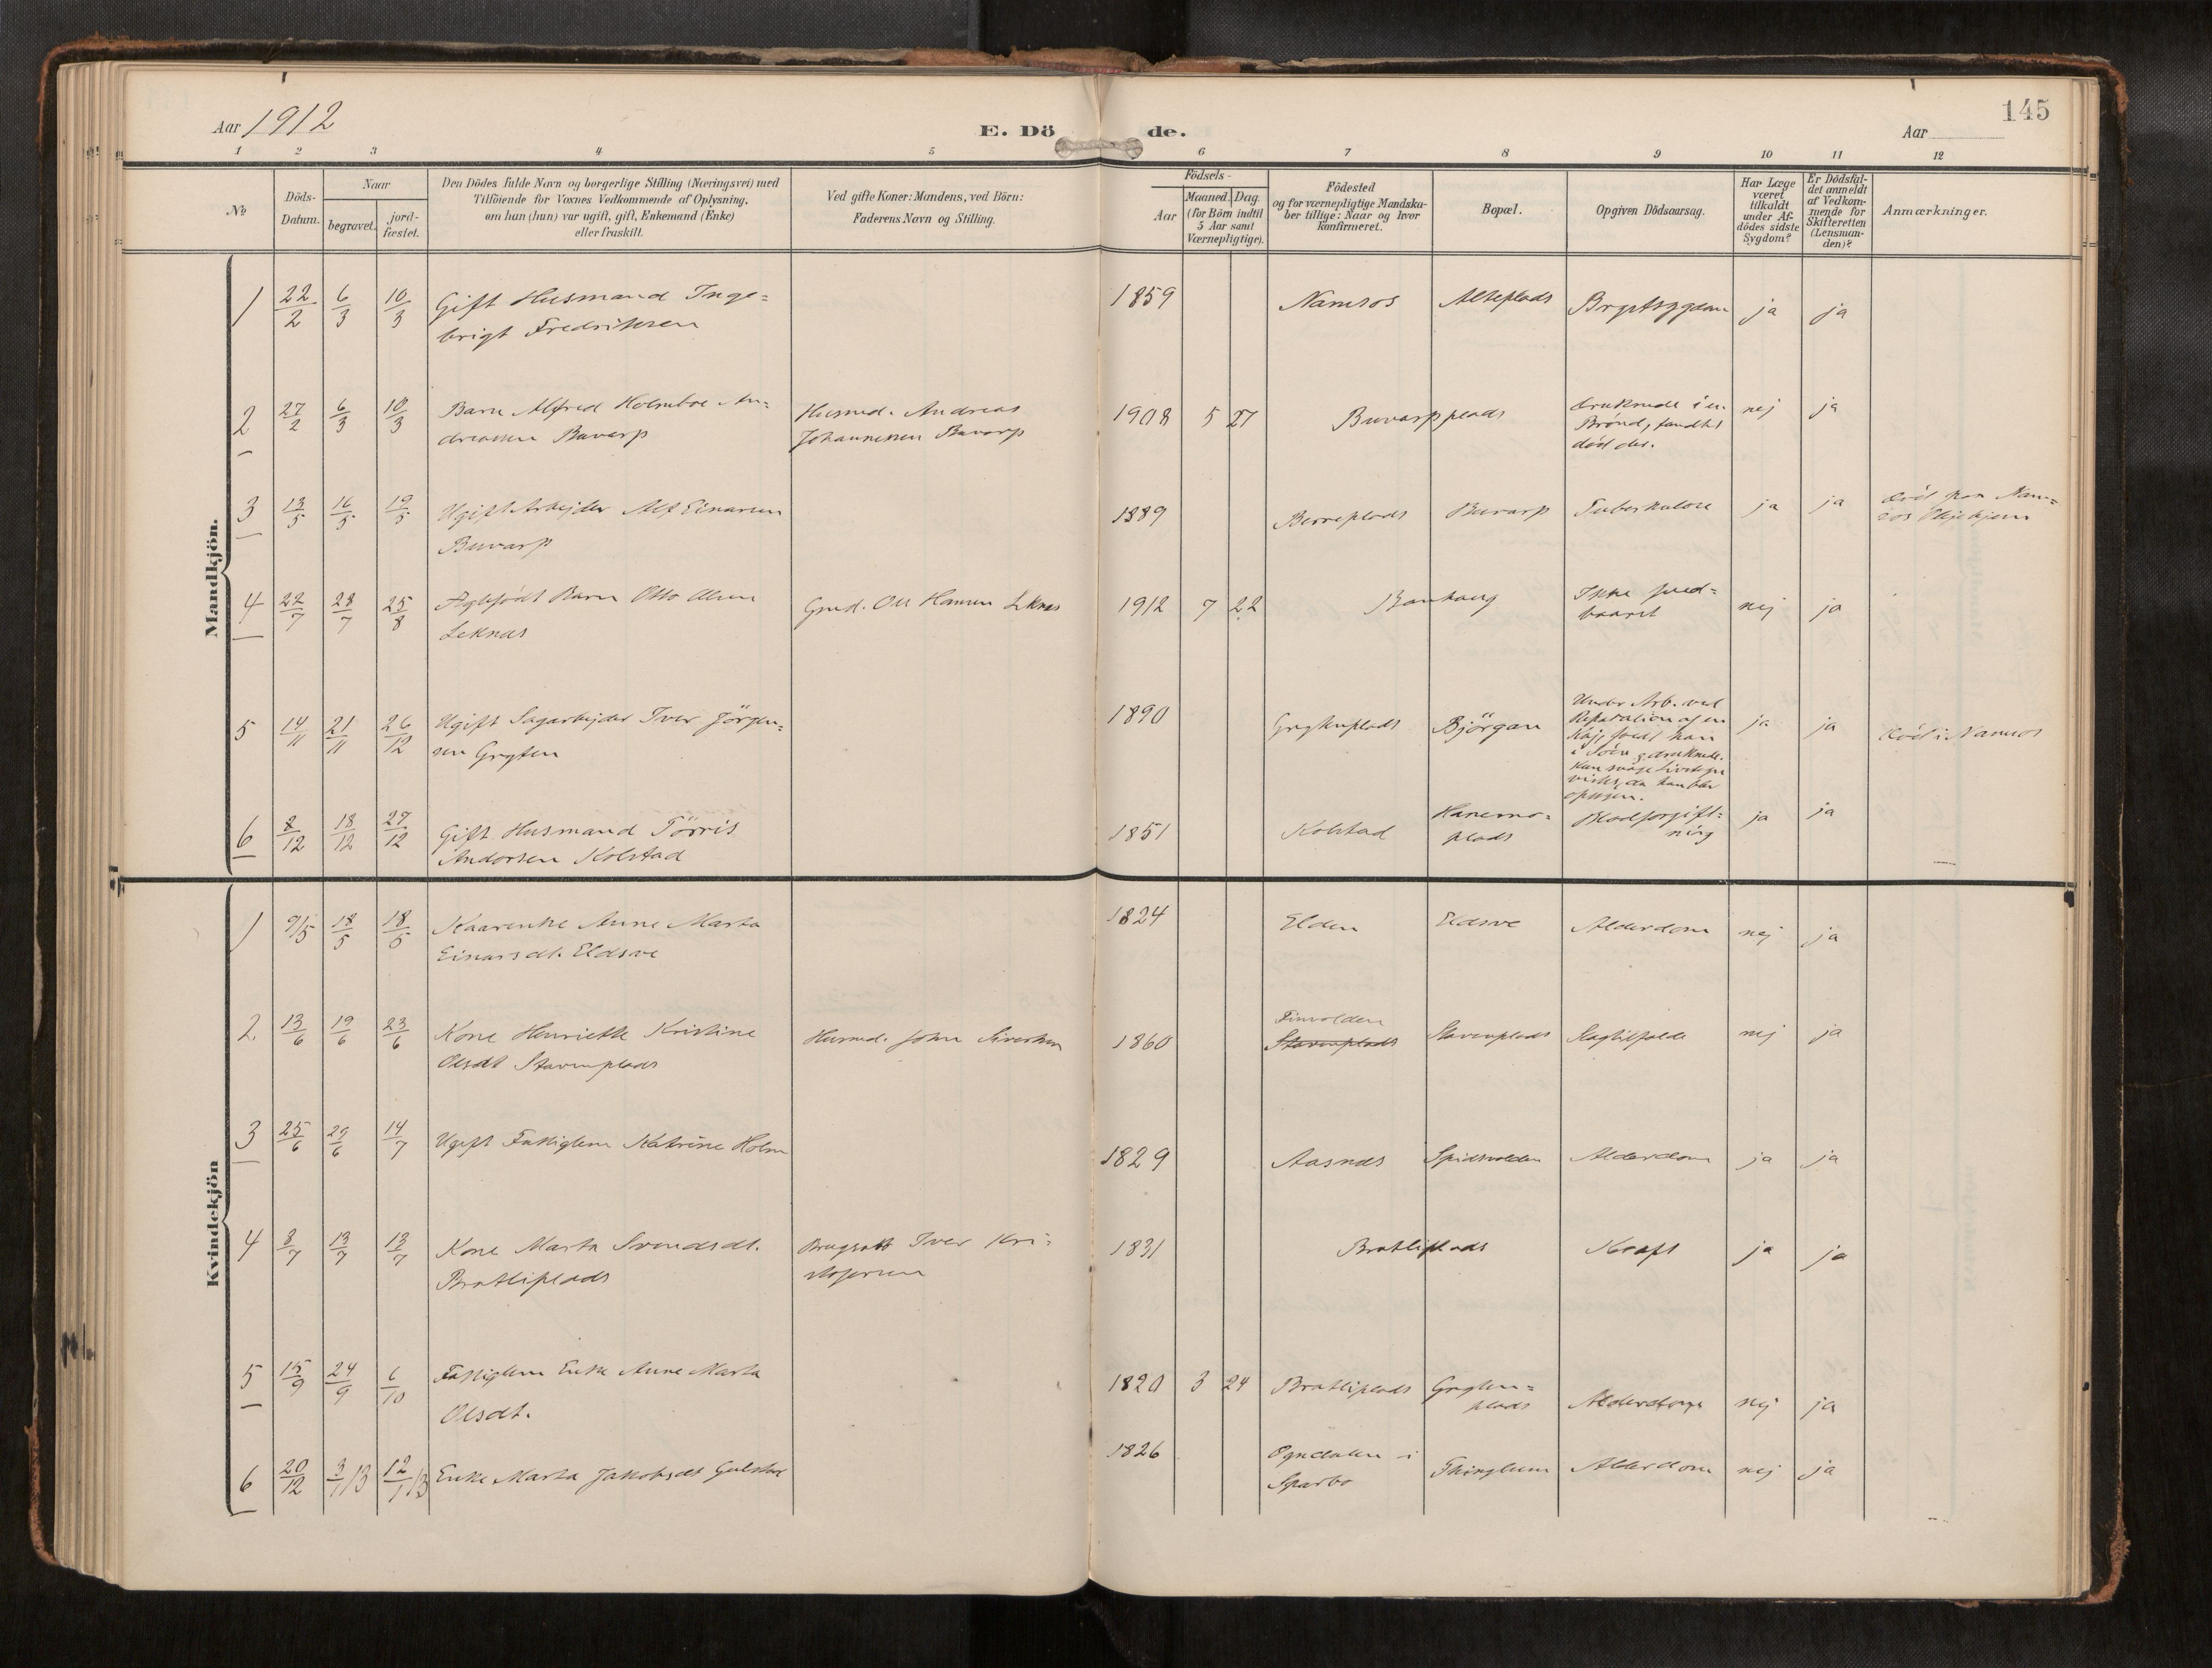 145
Aar 1912
E. Dö de.
Aar
1 2 3 4 5 6 7 8 9 10 11 12
No
Döds-
Datum.
Naar
begravet.
jord-
fæstet.
Den Dödes fulde Navn og borgerlige Stilling (Næringsvei) med
Tilföiende for Voxnes Vedkommende af Oplysning,
om han (hun) var ugift, gift, Enkemand (Enke)
eller fraskilt.
Ved gifte Koner: Mandens, ved Börn:
Faderens Navn og Stilling.
Födsels-
Aar
Maaned. Dag.
(for Börn indtil
5 Aar samt
Værnepligtige).
Födested
og for værnepligtige Mandska-
ber tillige: Naar og hvor
konfirmeret.
Bopæl.
Opgiven Dödsaarsag.
Har Læge
været
tilkaldt
under Af-
dödes sidste
Sygdom?
Er Dödsfal-
det anmeldt
af Vedkom-
mende for
Skifteretten
(Lensman-
den)?
Anmærkninger.
Mandkjön.
1 22/2 6/3 10/3 Gift Husmand Inge=
brigt Fredriksen
1859 Namsos Alteplads Brystsygdom ja ja
2 27/2 6/3 10/3 Barn Alfred Holmboe An=
dreassen Buvarp
Husmd. Andreas
Johannessen Buvarp
1908 5 27 Buvarpplads druknede i en
Brönd, fandtes
död der.
nej ja
3 13/5 16/5 19/5 Ugift Arbejder Alf Einarsen
Buvarp
1889 Berreplads Buvarp Tuberkulose ja ja död paa Nam=
sos Plejehjem
4 22/7 28/7 25/8 Barn Otto Olsen
Leknes
Gmd. Ole Hansen Leknes
1912 7 22 Banhaug Ikke fuld=
baaret
nej ja
5 14/11 21/11 26/12 Ugift Sagarbejder Iver Jörgen=
sen Gryten
1890 Grytenplads Björgan Under Arb. ved
Reparation af en
Kaj, faldt han
i Söen & druknede.
ja ja död i Namsos
6 8/12 18/12 27/12 Gift Husmand Törris
Andorsen Kolstad
1851 Kolstad Hanemo=
plads
Blodforgift=
ning
ja ja
Kvindekjön
1 9/5 18/5 18/5 Kaarenke Anne Marta
Einarsdt. Eldsve
1824 Elden Eldsve Alderdom nej ja
2 13/6 19/6 23/6 Kone Henriette Kristine
Olsdt Stavenplads
Husmd. John Sivertsen
1860 Finvolden
Stavenplads
Stavenplads Slagtilfælde nej ja
3 25/6 29/6 14/7 Ugift Fattiglem Katrine Holm
1829 Aasnes Spidsvolden Alderdom ja ja
4 8/7 13/7 13/7 Kone Marta Svendsdt.
Bratliplads
Brugsatt Iver Kri=
stofersen
1831 Bratliplads Kræft ja ja
5 15/9 24/9 6/10 Fattiglem Enke Anne Marta
Olsdt.
1820 3 24 Bratliplads Gryten=
plads
Alderdom nej ja
6 20/12 3/1/13 12/1/13 Enke Marta Jakobsdt Gulstad
1826 Ogndalen i
Sparbo
Alderdom nej ja